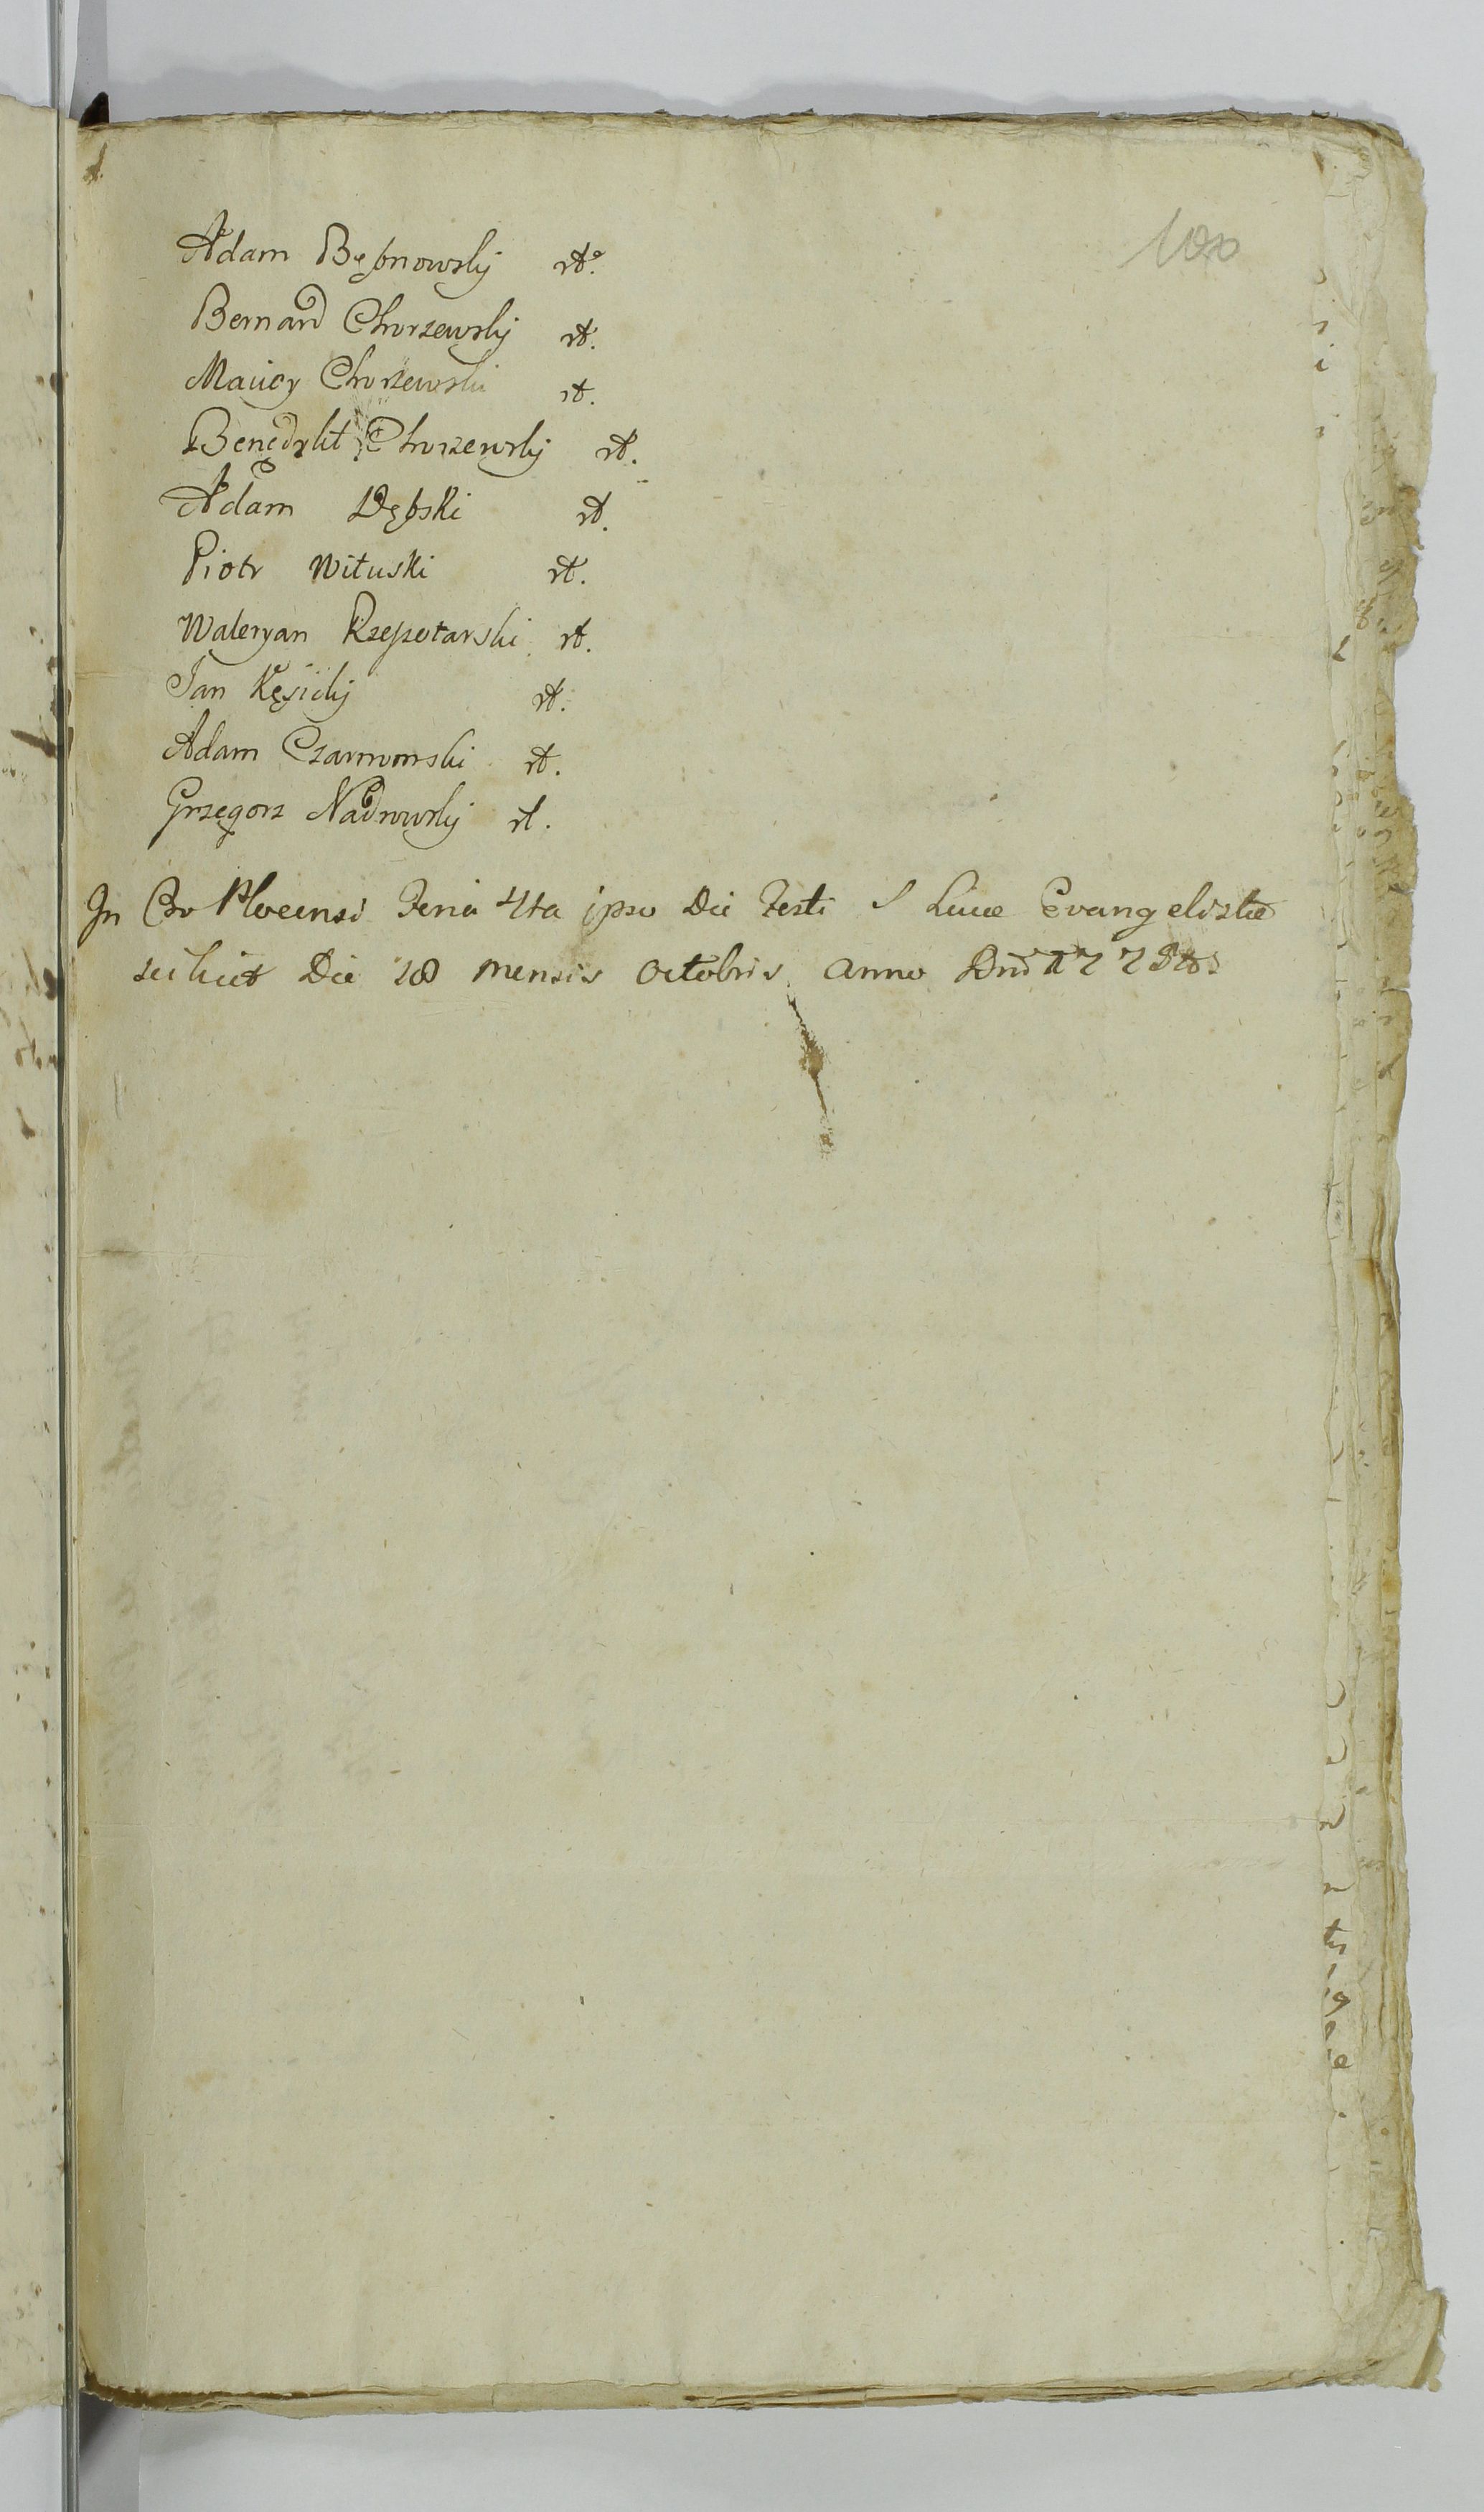 100
Adam Bębnowsky rt.
Bernard Chorzewsky rt.
Maucy Chorzewski rt.
Benedykt Chorzewsky rt.
Adam Dębski rt.
Piotr Wituski rt.
Waleryan Rzeszotarski rt.
Jan Kęsicky rt.
Adam Czarnomski rt.
Grzegorz Nadrowsky rt.
In Cro Plocensi Feria 4ta ipso Die Festi S Lucæ Evangelistæ
scilicet Die 18 mensis Octobris Anno Dnī